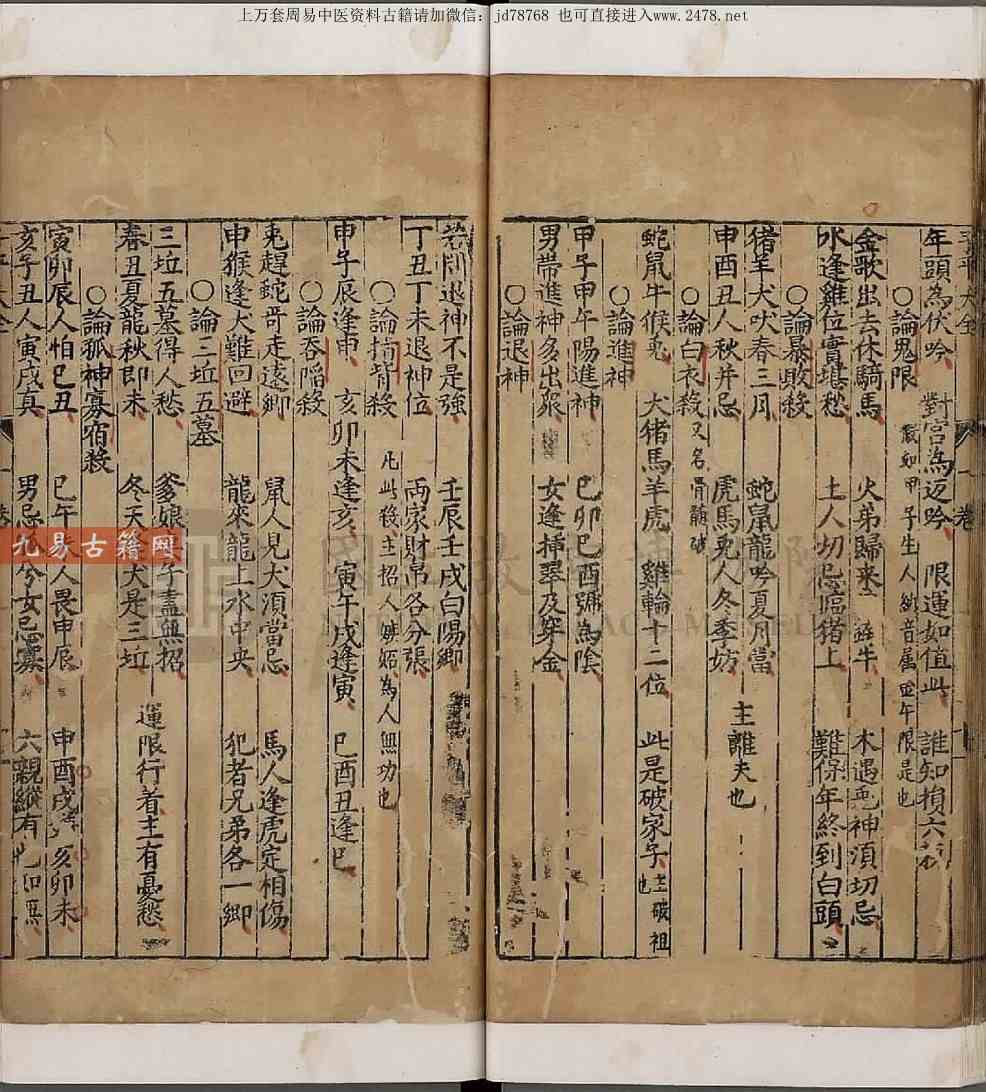 上万套周易中医资料古籍请加微信：jd78768 也可直接进入www.2478.net
年頭為伏吟 對宮為返吟 限運如值此 誰知損六親
○論鬼限 假如甲子生人納音屬金午限是也
金歌出去休騎馬 火弟歸來 牛 木遇神須切忌
水逢雞位實堪愁 土人切忌臨猪上 難保年終到白頭
○論暴敗殺
猪羊犬吠春三月 蛇鼠龍吟夏月當
申酉丑人秋并忌 虎馬兎人冬季妨 主離夫也
○論白衣殺 又名骨髓破
蛇鼠牛猴兎 犬猪馬羊虎 雞輪十二位 此是破家子 主破祖也
○論進神
甲子甲午陽進神 己卯己酉號為陰
男帶進神多出衆 女逢揷翠及穿金
○論退神
若問退神不是強 壬辰壬戌白陽鄉
丁丑丁未退神位 兩家財帛各分張
○論指背殺 凡此殺主招人嫉妬為人無功也
申子辰逢申 亥卯未逢亥 寅午戌逢寅 巳酉丑逢巳
○論吞陷殺
兎趕蛇哥走遠鄉 鼠人見犬須當忌 馬人逢虎定相傷
申猴逢犬難回避 龍來龍上水中央 犯者兄弟各一鄉
○論三坵五墓
三坵五墓得人愁 爹娘 子盡無招
春丑夏龍秋即未 冬天 犬是三坵 運限行着主有憂愁
○論孤神寡宿殺
寅卯辰人怕巳丑 巳午 人畏申辰 申酉戌 亥卯未
亥子丑人寅戌真 男忌 兮女忌寡 六親縱有也如無
九易古籍网